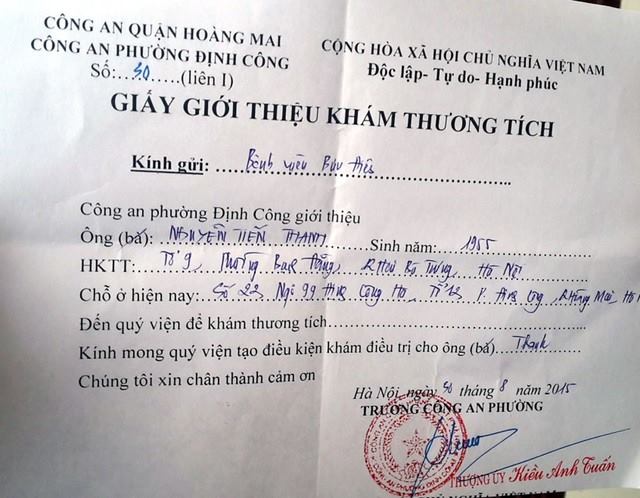 CÔNG AN QUẬN HOÀNG MAI
CÔNG AN PHƯỜNG ĐỊNH CÔNG
Số:...30.....(liên I)
CỘNG HÒA XÃ HỘI CHỦ NGHĨA VIỆT NAM
Độc lập- Tự do- Hạnh phúc
GIẤY GIỚI THIỆU KHÁM THƯƠNG TÍCH
Kính gửi: Bệnh viện Bưu điện
Công an phường Định Công giới thiệu
Ông (bà): NGUYỄN TIẾN THANH Sinh năm: 1955
HKTT: Tổ 9, Phường Bạch Đằng, Hai Bà Trưng, Hà Nội
Chỗ ở hiện nay: Số 23 Ngõ 99 Định Công Hạ, P. Định Công, Hoàng Mai, H
Đến quý viện để khám thương tích
Kính mong quý viện tạo điều kiện khám điều trị cho ông (bà) Thanh
Chúng tôi xin chân thành cảm ơn
Hà Nội, ngày 30 tháng 8 năm 2015
TRƯỞNG CÔNG AN PHƯỜNG
THƯỢNG ÚY Kiều Anh Tuấn